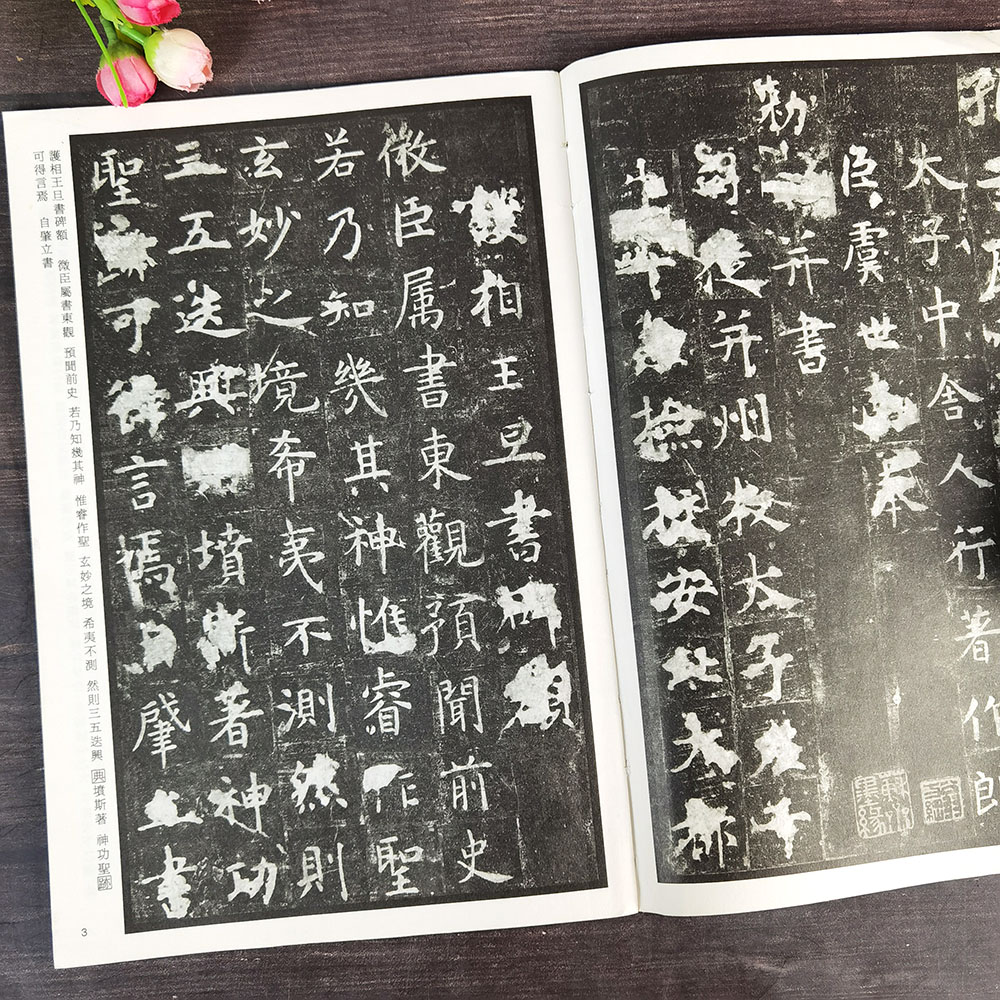 孔
太子中舍人行著作郎
臣虞世南奉
勑撰并書
司徒并州牧太子左千
牛率兼撿挍安北大都
護相王旦書碑額
微臣属書東觀預聞前史
若乃知幾其神惟睿作聖
玄妙之境希夷不測然則
三五迭興 墳斯著神功
聖迹可得言焉自肇立書
護相王旦書碑額 微臣屬書東觀 預聞前史 若乃知幾其神 惟睿作聖 玄妙之境 希夷不測 然則三五迭興 典墳斯著 神功聖跡
可得言焉 自肇立書
3